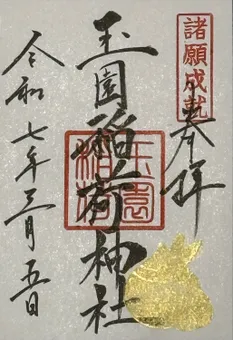 諸願成就
奉拝
玉園稲荷神社
玉園稲荷
令和七年三月五日